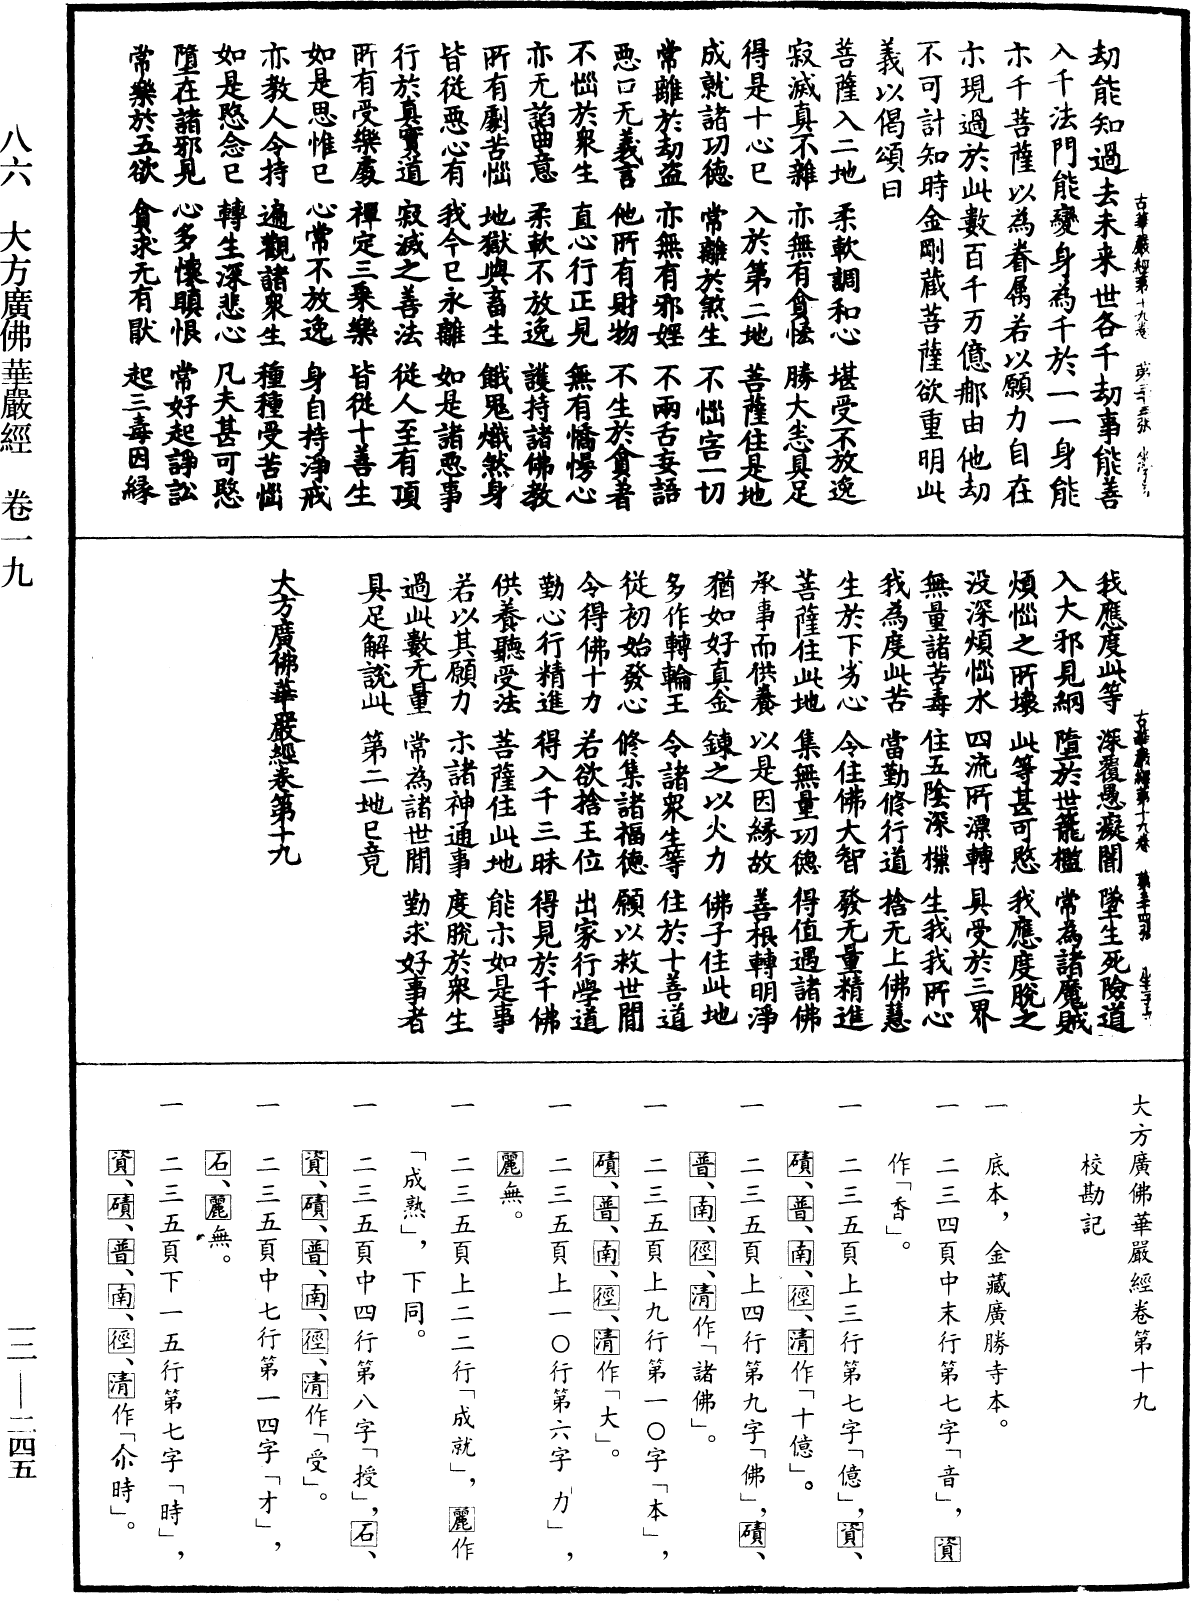 八六 大方廣佛華嚴經 卷一九
一二—二四五
劫能知過去未来世各千劫事能善
入千法門能變身為千於一一身能
示千菩薩以為眷属若以願力自在
示現過於此數百千万億那由他劫
不可計知時金剛蔵菩薩欲重明此
義以偈頌曰
菩薩入二地 柔軟調和心 堪受不放逸
寂滅真不雜 亦無有貪恡 勝大志具足
得是十心已 入於第二地 菩薩住是地
成就諸功德 常離於煞生 不惱害一切
常離於劫盗 亦無有邪婬 不兩舌妄語
惡口无義言 他所有財物 不生於貪著
不惱於衆生 直心行正見 無有憍慢心
亦无諂曲意 柔軟不放逸 護持諸佛教
所有劇苦惱 地獄與畜生 餓鬼熾煞身
皆從惡心有 我今已永離 如是諸惡事
行於真實道 寂滅之善法 從人至有頂
所有受樂處 禪定三乘樂 皆從十善生
如是思惟已 心常不放逸 身自持淨戒
亦教人令持 遍觀諸衆生 種種受苦惱
如是愍念已 轉生深悲心 凡夫甚可愍
墮在諸邪見 心多懷瞋恨 常好起諍訟
常樂於五欲 貪求无有猒 起三毒因緣
古華嚴經第十九卷
我應度此等 深覆愚癡闇 墜生死險道
入大邪見網 墮於世籠檻 常為諸魔賊
煩惱之所壞 此等甚可愍 我應度脫之
没深煩惱水 四流所漂轉 具受於三界
無量諸苦毒 住五陰深樔 生我我所心
我為度此苦 當勤修行道 捨无上佛慧
生於下劣心 令住佛大智 發无量精進
菩薩住此地 集無量功德 得值遇諸佛
承事而供養 以是因緣故 善根轉明淨
猶如好真金 鍊之以火力 佛子住此地
多作轉輪王 令諸衆生等 住於十善道
從初始發心 修集諸福德 願以救世間
令得佛十力 若欲捨王位 出家行學道
勤心行精進 得入千三昧 得見於千佛
供養聽受法 菩薩住此地 能示如是事
若以其願力 示諸神通事 度脫於衆生
過此數无量 常為諸世間 勤求好事者
具足解說此 第二地已竟
大方廣佛華嚴經卷第十九
大方廣佛華嚴經卷第十九
校勘記
一 底本，金藏廣勝寺本。
一 二三四頁中末行第七字「音」，資
作「香」。
一 二三五頁上三行第七字「億」，資、
磧、普、南、徑、清作「十億」。
一 二三五頁上四行第九字「佛」，磧、
普、南、徑、清作「諸佛」。
一 二三五頁上九行第一〇字「本」，
磧、普、南、徑、清作「大」。
一 二三五頁上一〇行第六字「力」，
麗無。
一 二三五頁上二二行「成就」，麗作
「成熟」，下同。
一 二三五頁中四行第八字「授」，石、
資、磧、普、南、徑、清作「受」。
一 二三五頁中七行第一四字「才」，
石、麗無。
一 二三五頁下一五行第七字「時」，
資、磧、普、南、徑、清作「尒時」。